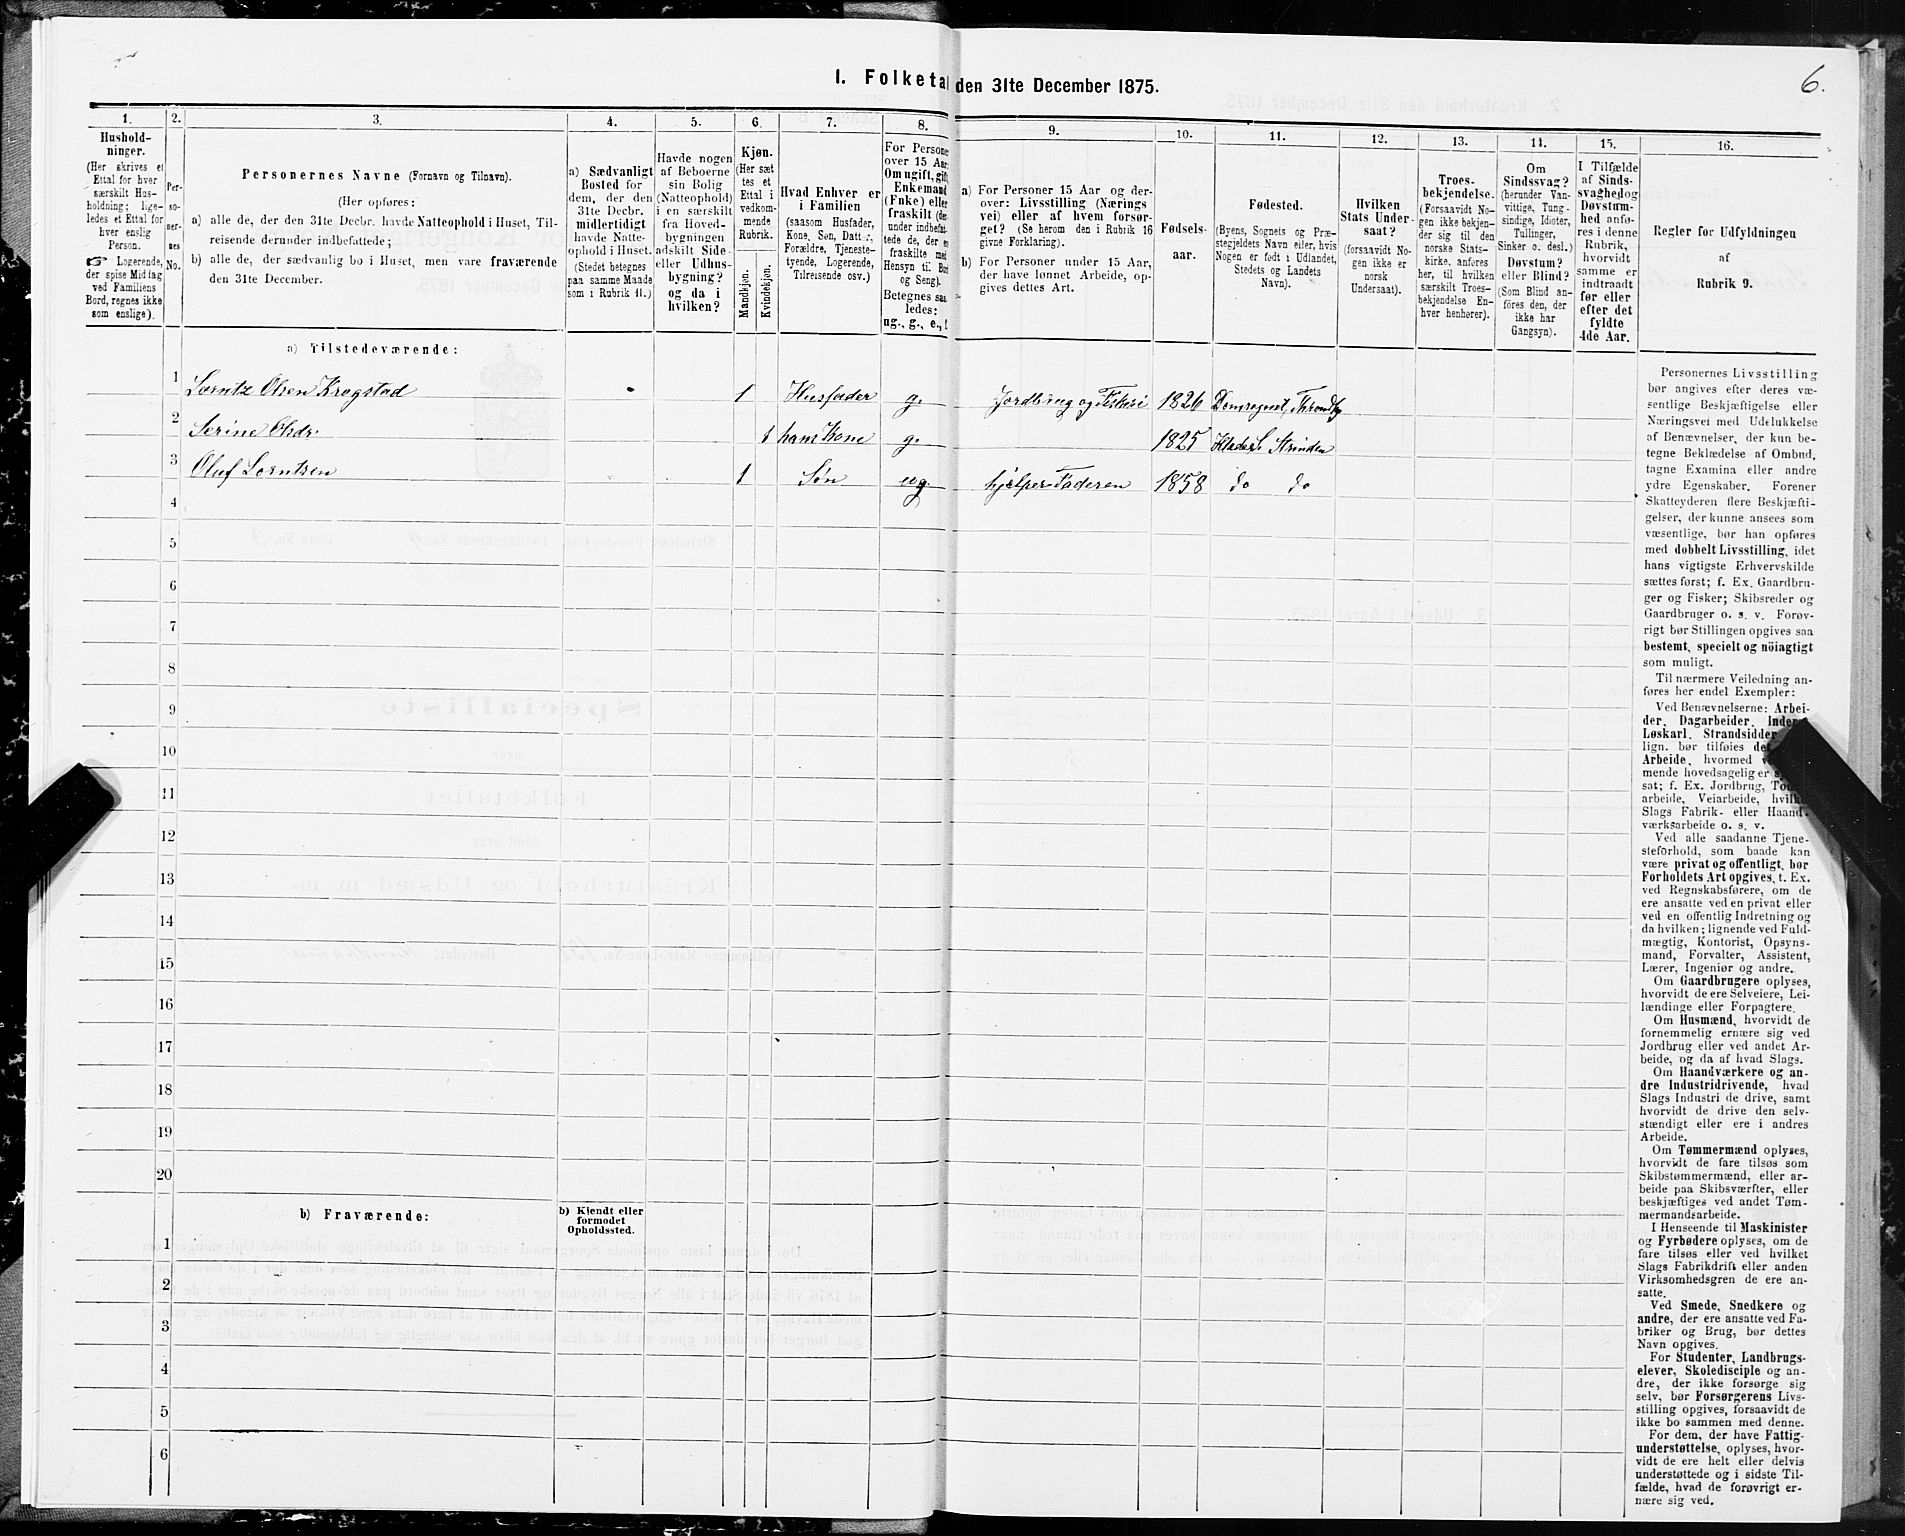 I. Folketal den 31te December 1875.
6.
1.
Hushold-
ninger.
(Her skrives et
Ettal for hver
særskilt Hus-
holdning; lige-
ledes et Ettal for
hver enslig
Person.
Logerende,
der spise Middag
ved Familiens
Bord, regnes ikke
som enslige).
2.
Per-
so-
ner-
nes
No.
3.
Personernes Navne (Fornavn og Tilnavn).
(Her opføres:
a) alle de, der den 31te Decbr. havde Natteophold i Huset, Til-
reisende derunder indbefattede;
b) alle de, der sædvanlig bo i Huset, men vare fraværende
den 31te December.
4.
a) Sædvanligt
Bosted for
dem, der den
31te Decbr.
midlertidigt
havde Natte-
ophold i Huset.
(Stedet betegnes
paa samme Maade
som i Rubrik 11.)
5.
Havde nogen
af Beboerne
sin Bolig
(Natteophold)
i en særskilt
fra Hoved-
bygningen
adskilt Side-
eller Udhus-
bygning?
og da i
hvilken?
6.
Kjøn.
(Her sæt
tes et
Ettal i
vedkom-
mende
Rubrik.
Mandkjøn.
Kvindekjøn.
7.
Hvad Enhver er
i Familien
(saasom Husfader,
Kone, Søn, Datter,
Forældre, Tjeneste-
tyende, Logerende,
Tilreisende osv.)
8.
For Personer
over 15 Aar:
Om ugift, gift,
Enkemand
(Enke) eller
fraskilt (der-
under indbefat-
tede de, der ere
fraskilte med
Hensyn til Bord
og Seng).
Betegnes saa-
ledes:
ug., g., e., f.
9.
a) For Personer 15 Aar og der-
over: Livsstilling (Nærings
vei) eller af hvem forsør-
get? (Se herom den i Rubrik 16
givne Forklaring).
b) For Personer under 15 Aar,
der have lønnet Arbeide, op-
gives dettes Art.
10.
Fødsels-
aar.
11.
Fødested.
(Byens, Sognets og Præ-
stegjeldets Navn eller, hvis
Nogen er født i Udlandet,
Stedets og Landets
Navn).
12.
Hvilken
Stats Under-
saat?
(forsaavidt No-
gen ikke er
norsk
Undersaat).
13.
Troes-
bekjendelse.
(Forsaavidt No-
gen ikke bekjen-
der sig til den
norske Stats-
kirke, anføres
her, til hvilken
særskilt Troes-
bekjendelse En-
hver henhører).
14.
Om
Sindssvag?
(herunder Van-
vittige, Tung-
sindige, Idioter,
Tullinger,
Sinker o. desl.)
Døvstum?
eller Blind?
(Som Blind an-
føres den, der
ikke har
Gangsyn).
15.
I Tilfælde
af Sinds-
svaghed og
Døvstum-
hed anfø-
res i denne
Rubrik,
hvorvidt
samme er
indtraadt
før eller
efter det
fyldte
4de Aar.
16.
Regler for Udfyldningen
af
Rubrik 9.
a) Tilstedeværende:
1 Lorntz Olsen Krogstad 1 Husfader g. Jordbrug og Fiskeri 1826 Domsognet, Trondhj
2 Serine Olsdr 1 hans Kone g. 1825 Klades. Strinden
3 Oluf Lorntsen 1 Søn ug. hjelper Faderen 1858 do do
4
5
6
7
8
9
10
11
12
13
14
15
16
17
18
19
20
b) Fraværende:
b) Kjendt eller
formodet
Opholdssted.
1
2
3
4
5
6
Personernes Livsstilling
bør angives efter deres væ-
sentlige Beskjæftigelse eller
Næringsvei med Udelukkelse
af Benævnelser, der kun be-
tegne Beklædelse af Ombud,
tagne Examina eller andre
ydre Egenskaber. Forener
Skatteyderen flere Beskjæfti-
gelser, der kunne ansees som
væsentlige, bør han opføres
med dobbelt Livsstilling, idet
hans vigtigste Erhvervskilde
sættes først; f. Ex. Gaardbru-
ger og Fisker; Skibsreder og
Gaardbruger o. s. v. Forøv-
rigt bør Stillingen opgives saa
bestemt, specielt og nöiagtigt
som muligt.
Til nærmere Veiledning an-
føres her endel Exempler:
Ved Benævnelserne: Arbei-
der, Dagarbeider, Inder
Løskarl, Strandsidder
lign. bør tilføies de
Arbeide, hvormed v
mende hovedsagelig er
sat; f. Ex. Jordbrug, Tøm
arbeide, Veiarbeide, hvilke
Slags Fabrik- eller Haand-
værksarbeide o. s. v.
Ved alle saadanne Tjene-
steforhold, som baade kan
være privat og offentligt, bør
Forholdets Art opgives, t. Ex.
ved Regnskabsførere, om de
ere ansatte ved en privat eller
ved en offentlig Indretning og
da hvilken; lignende ved Fuld-
mægtig, Kontorist, Opsyns-
mand, Forvalter, Assistent,
Lærer, Ingeniør og andre.
Om Gaardbrugere oplyses,
hvorvidt de ere Selveiere, Lei-
lændinge eller Forpagtere.
Om Husmænd, hvorvidt de
fornemmelig ernære sig ved
Jordbrug eller ved andet Ar-
beide, og da af hvad Slags.
Om Haandværkere og an
dre Industridrivende, hvad
Slags Industri de drive, samt
hvorvidt de drive den selv-
stændigt eller ere i andres
Arbeide.
Om Tømmermænd oplyses,
hvorvidt de fare tilsøs som
Skibstømmermænd, eller ar-
beide paa Skibsværfter, eller
beskjæftiges ved andet Tøm-
mermandsarbeide.
I Henseende til Maskinister
og Fyrbødere oplyses, om de
fare tilsøs eller ved hvilket
Slags Fabrikdrift eller anden
Virksomhedsgren de ere an-
satte.
Ved Smede, Snedkere og
andre, der ere ansatte ved Fa-
briker og Brug, bør dettes
Navn opgives.
For Studenter, Landbrugs-
elever, Skoledisciple og an-
dre, der ikke forsørge sig
selv, bør Forsørgerens Livs-
stilling opgives, forsaavidt de
ikke bo sammen med denne.
For dem, der have Fattig-
understøttelse, oplyses, hvor-
vidt de ere helt eller delvis
understøttede og i sidste Til-
fælde, hvad de forøvrigt er-
nære sig ved.